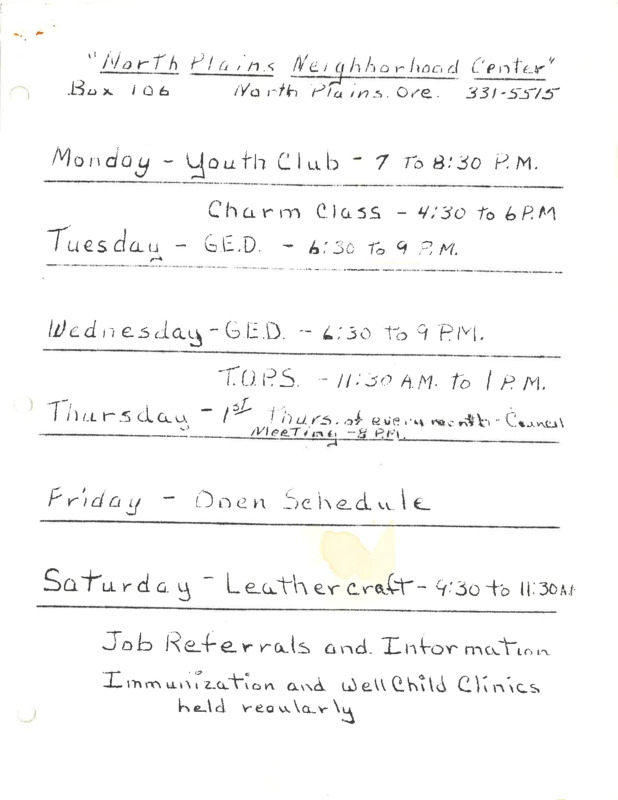 "North Plains Neighborhood Center"
Box 106 North Plains. Ore. 331-5515
Monday - Youth Club - 7 To 8:30 P.M.
Charm Class - 4:30 to 6 P.M
Tuesday - G.E.D. - 6:30 To 9 P.M.
Wednesday - G.E.D. - 6:30 to 9 P.M.
T.O.P.S. - 11:30 A.M. to 1 P.M.
Thursday - 1st Thurs. of every month - Council
Meeting - 8 P.M.
Friday - Open Schedule
Saturday - Leathercraft - 9:30 to 11:30 A.M
Job Referrals and Information
Immunization and Well Child Clinics
held regularly